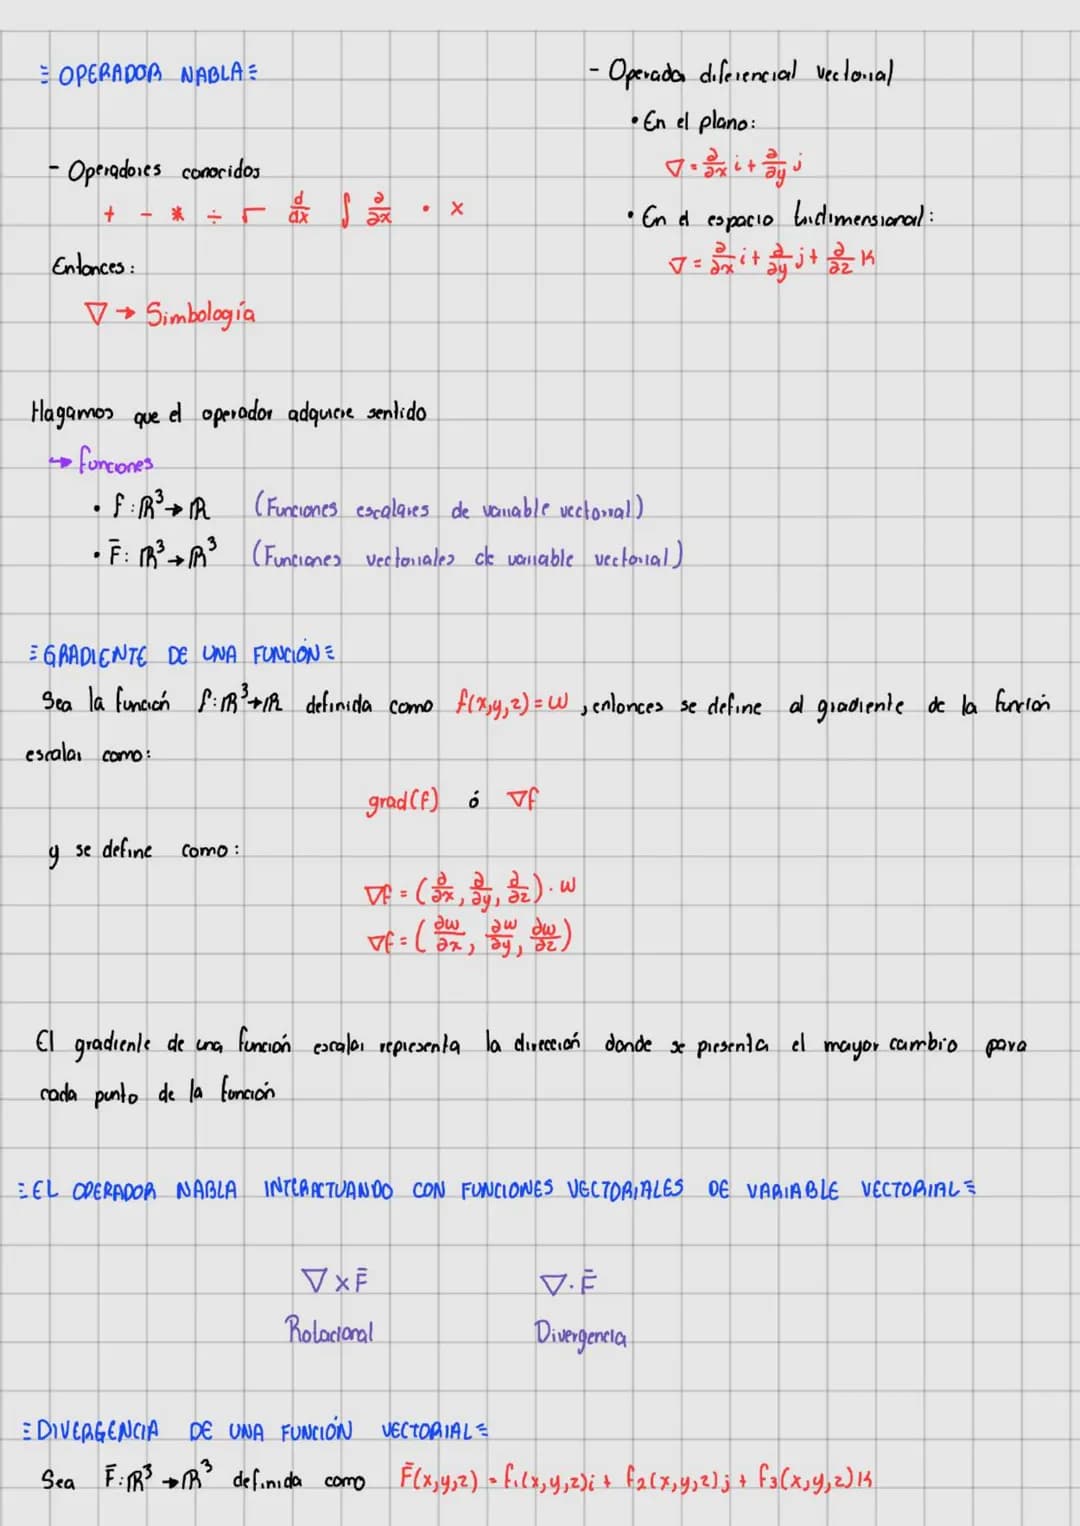 OPERADOR NABLA
- Operadores conocidos
+ - * ÷ √ d/dx ∫ ∂/∂x · x
Entonces:
∇ → Simbología
- Operador diferencial vectorial
• En el plano:
∇ = ∂/∂x i + ∂/∂y j
• En el espacio tridimensional:
∇ = ∂/∂x i + ∂/∂y j + ∂/∂z K
Hagamos que el operador adquiere sentido
↪ funciones
• f: ℝ³ → ℝ (Funciones escalares de variable vectorial)
• F̄: ℝ³ → ℝ³ (Funciones vectoriales de variable vectorial)
GRADIENTE DE UNA FUNCIÓN
Sea la función f: ℝ³→ℝ definida como f(x,y,z) = w, entonces se define al gradiente de la función
escalar como:
grad(f) ó ∇f
y se define como:
∇f = (∂/∂x, ∂/∂y, ∂/∂z) · w
∇f = (∂w/∂x, ∂w/∂y, ∂w/∂z)
El gradiente de una función escalar representa la dirección donde se presenta el mayor cambio para
cada punto de la función
EL OPERADOR NABLA INTERACTUANDO CON FUNCIONES VECTORIALES DE VARIABLE VECTORIAL
∇ x F̄ ∇ · F̄
Rotacional Divergencia
DIVERGENCIA DE UNA FUNCIÓN VECTORIAL
Sea F̄: ℝ³ → ℝ³ definida como F̄(x,y,z) = f₁(x,y,z)i + f₂(x,y,z)j + f₃(x,y,z)K